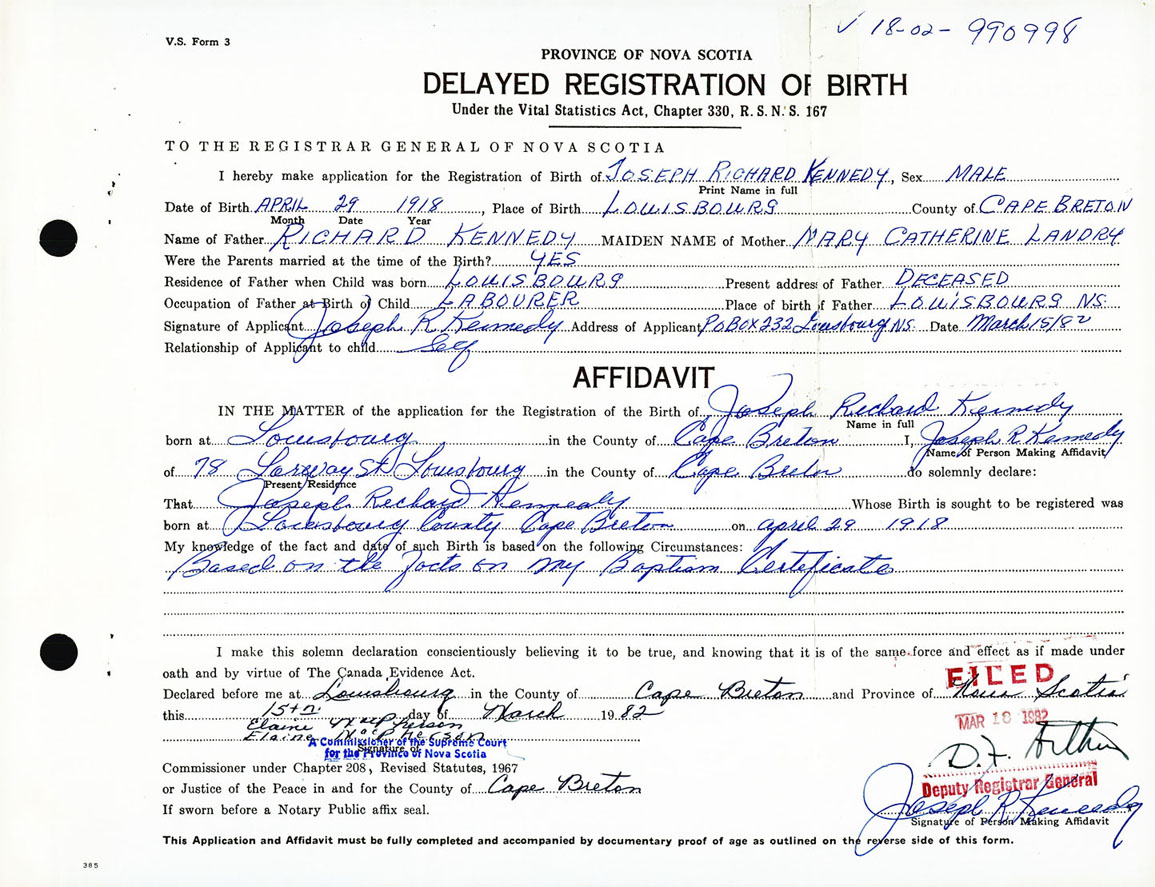 V.S. Form 3
✓ 18-02-990998
PROVINCE OF NOVA SCOTIA
DELAYED REGISTRATION OF BIRTH
Under the Vital Statistics Act, Chapter 330, R. S. N. S. 167
TO THE REGISTRAR GENERAL OF NOVA SCOTIA
I hereby make application for the Registration of Birth of JOSEPH RICHARD KENNEDY, Sex MALE
Print Name in full
Date of Birth APRIL 29 1918, Place of Birth LOUISBOURG County of CAPE BRETON
Month Date Year
Name of Father RICHARD KENNEDY MAIDEN NAME of Mother MARY CATHERINE LANDRY
Were the Parents married at the time of the Birth? YES
Residence of Father when Child was born LOUISBOURG Present address of Father DECEASED
Occupation of Father at Birth of Child LABOURER Place of birth of Father LOUISBOURG NS.
Signature of Applicant Joseph R Kennedy Address of Applicant PO BOX 232 Louisbourg NS. Date March 15/82
Relationship of Applicant to child Self
AFFIDAVIT
IN THE MATTER of the application for the Registration of the Birth of Joseph Richard Kennedy
Name in full
born at Louisbourg in the County of Cape Breton I, Joseph R Kennedy
Name of Person Making Affidavit
of 78 St Louisbourg in the County of Cape Breton do solemnly declare:
Present Residence
That Joseph Richard Kennedy Whose Birth is sought to be registered was
born at Louisbourg County Cape Breton on april 29 1918
My knowledge of the fact and date of such Birth is based on the following Circumstances:
Based on the facts on my Baptism Certificate
I make this solemn declaration conscientiously believing it to be true, and knowing that it is of the same force and effect as if made under
oath and by virtue of The Canada Evidence Act.
FILED
Declared before me at Louisbourg in the County of Cape Breton and Province of Nova Scotia
this 15th day of March 1982
MAR 18 1982
Elaine MacPherson
Elaine MacPherson
A Commissioner of the Supreme Court
for the Province of Nova Scotia
Signature of
D. F.
Commissioner under Chapter 208, Revised Statutes, 1967
Deputy Registrar General
or Justice of the Peace in and for the County of Cape Breton
Joseph R Kennedy
If sworn before a Notary Public affix seal.
Signature of Person Making Affidavit
This Application and Affidavit must be fully completed and accompanied by documentary proof of age as outlined on the reverse side of this form.
385